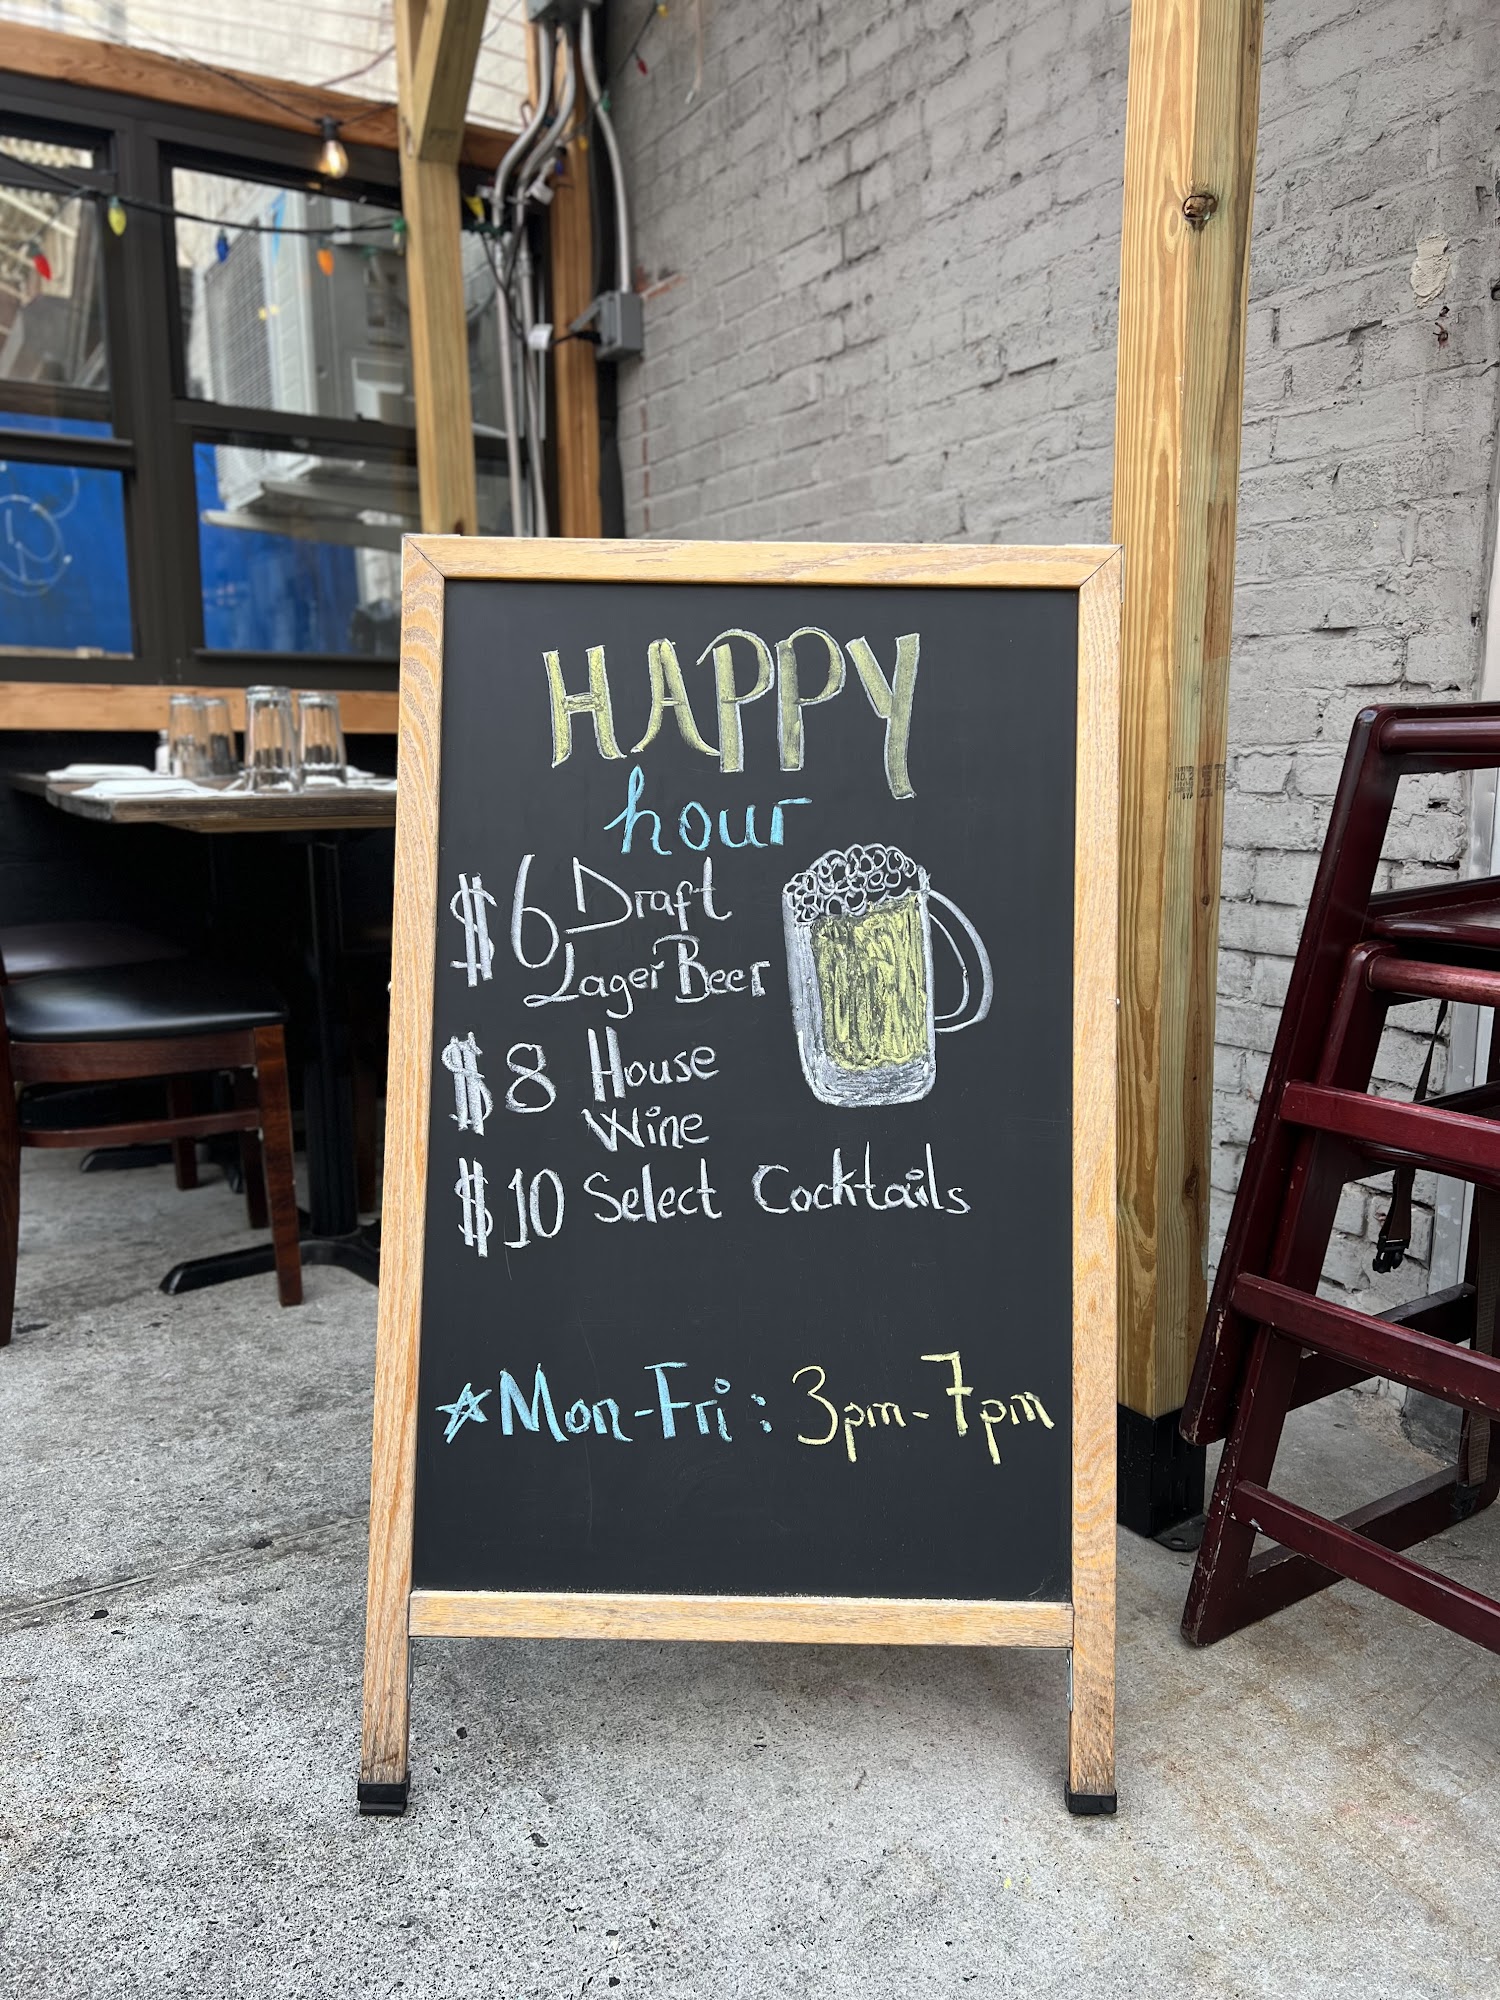 HAPPY
hour
$6 Draft
Lager Beer
$8 House
Wine
$10 Select Cocktails
☆Mon-Fri: 3pm-7pm